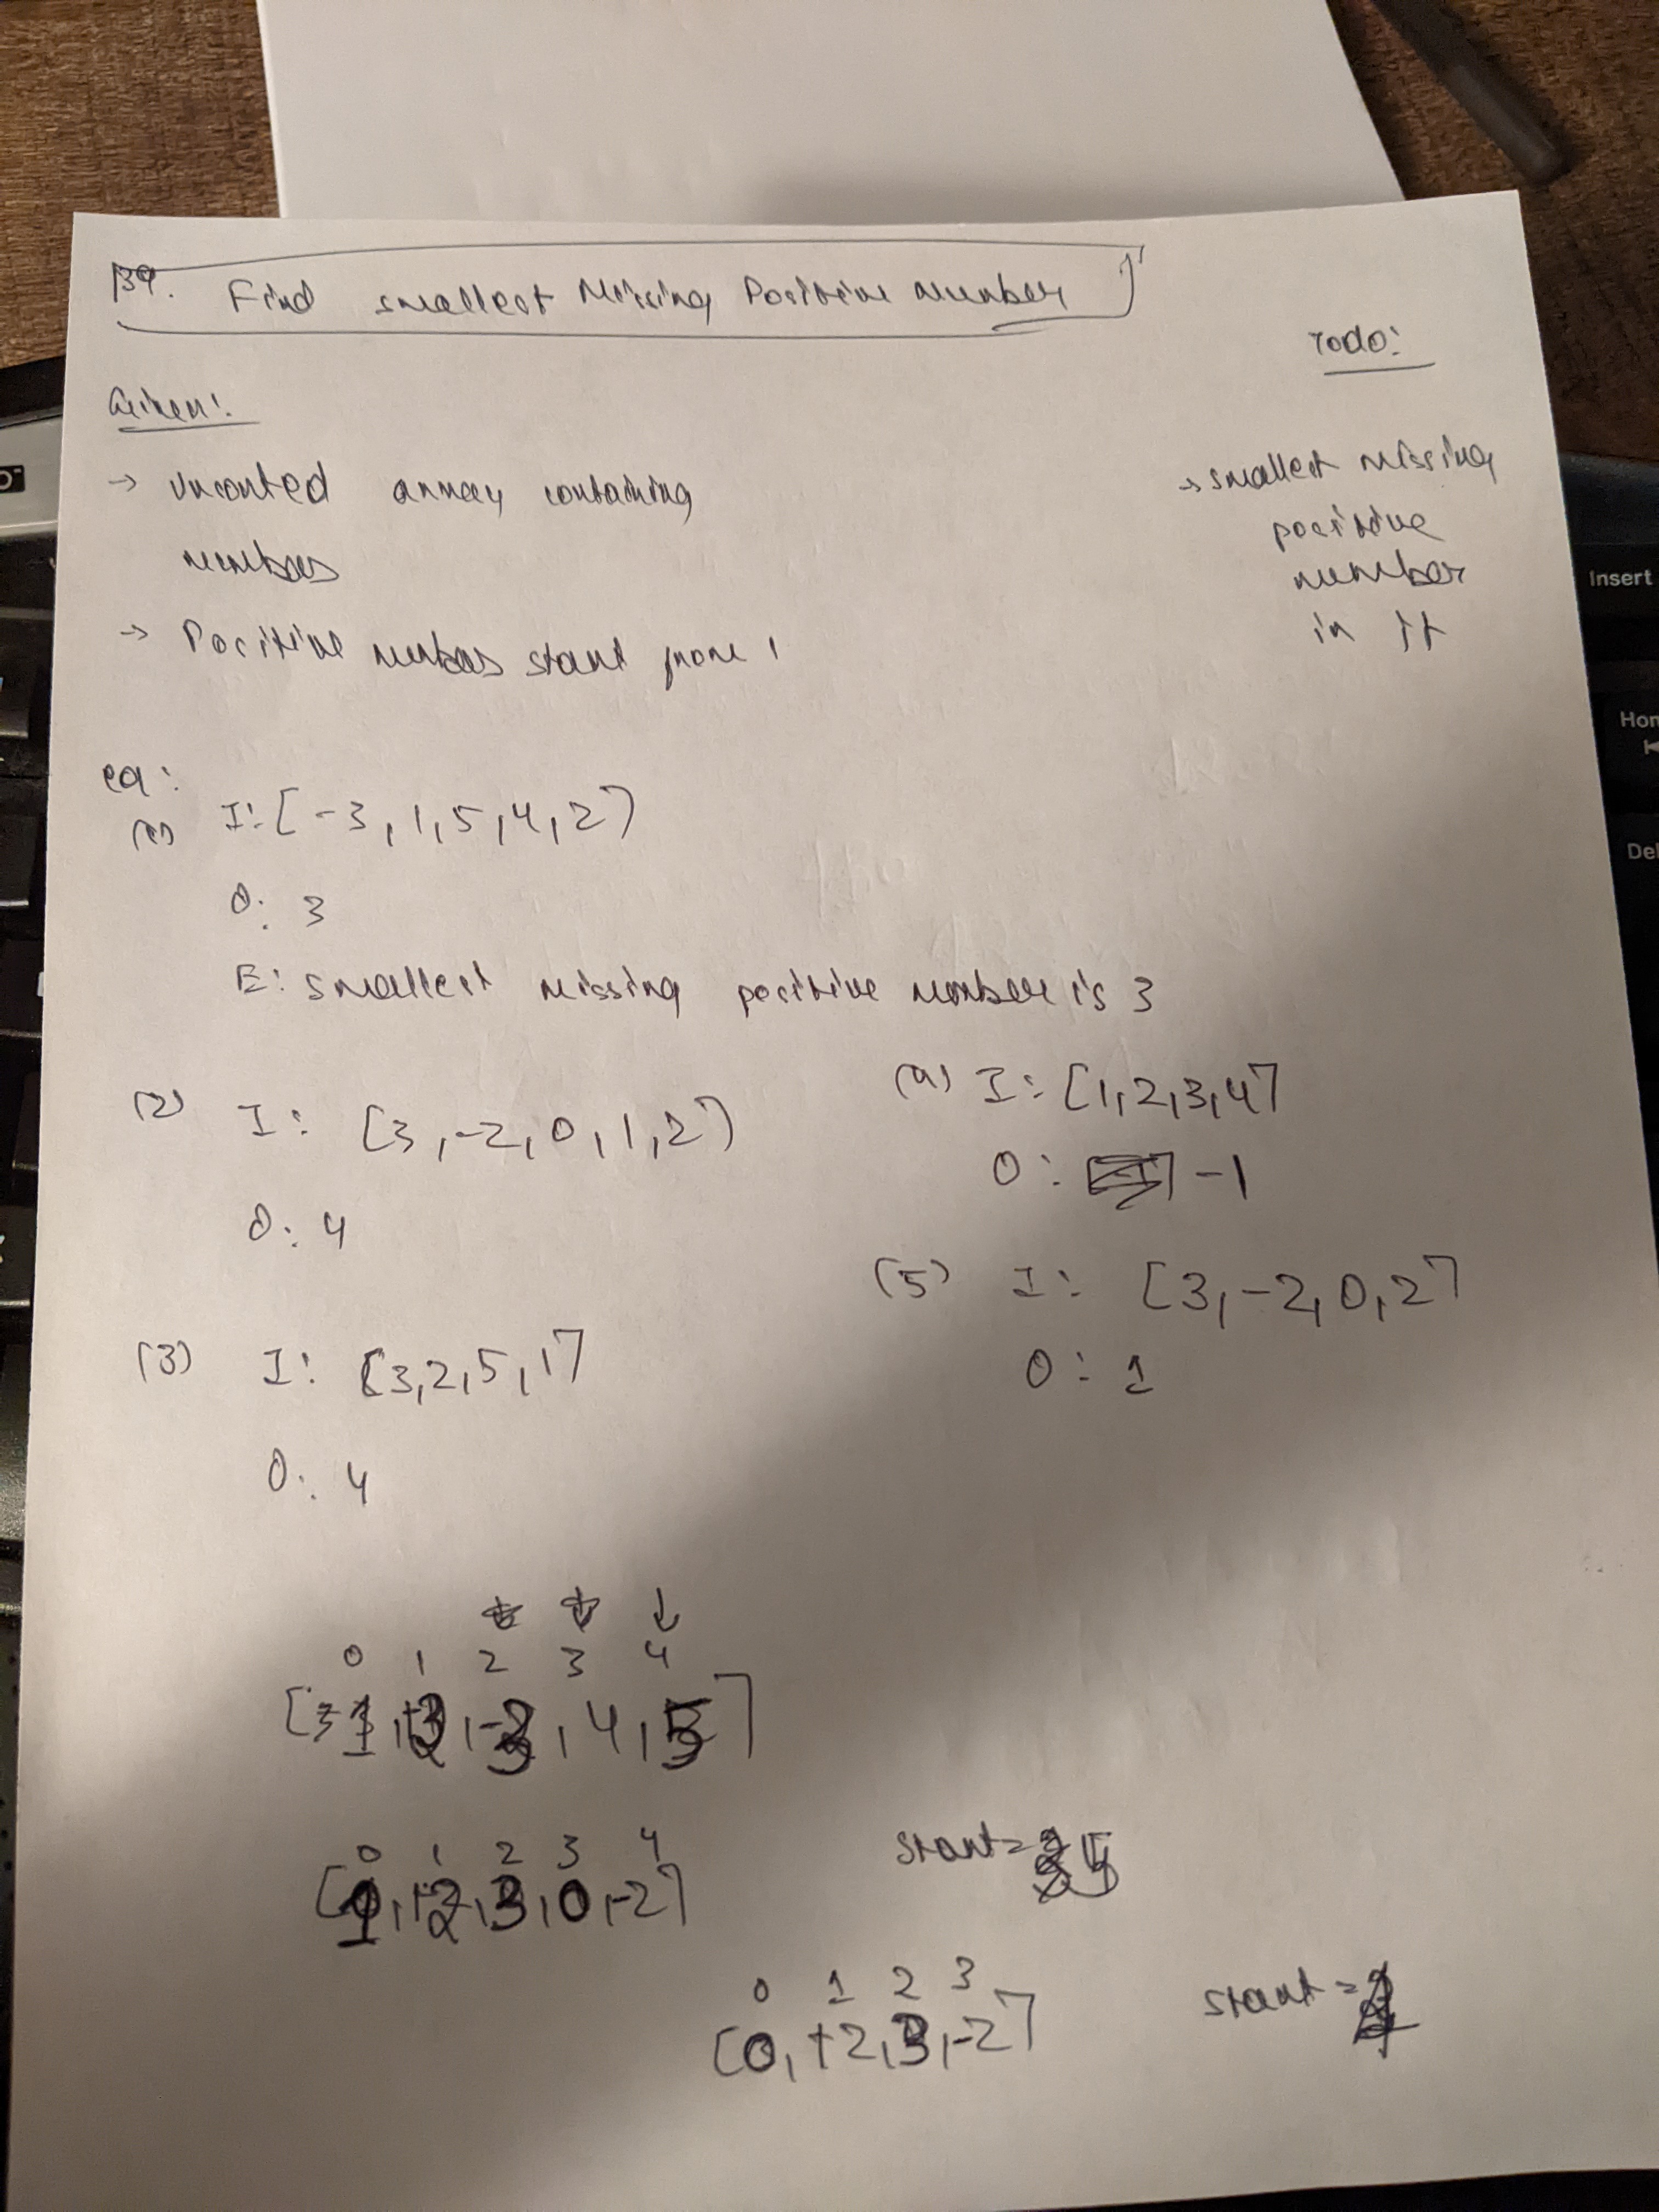 139. Find smallest Missing Positive Number
Todo:
Given:
→ Unsorted array containing
numbers
→ Positive numbers start from 1
→ smallest missing
positive
number
in it
eg:
(1) I: [-3, 1, 5, 4, 2]
O: 3
E: smallest missing positive number is 3
(2) I: [3, -2, 0, 1, 2]
O: 4
(3) I: [3, 2, 5, 1]
O: 4
(4) I: [1, 2, 3, 4]
O: -1
(5) I: [3, -2, 0, 2]
O: 1
↓
0 1 2 3 4
0 1 2 3 4
start =
0 1 2 3
[0, +2, 3, -2]
start =
Insert
Hom
Del